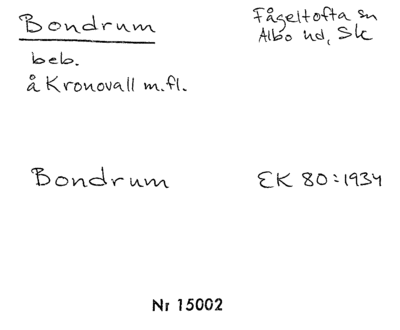 Bondrum
Fågeltofta sn
Albo hd, Sk
beb.
å Kronovall m.fl.
Bondrum
EK 80:1934
Nr 15002